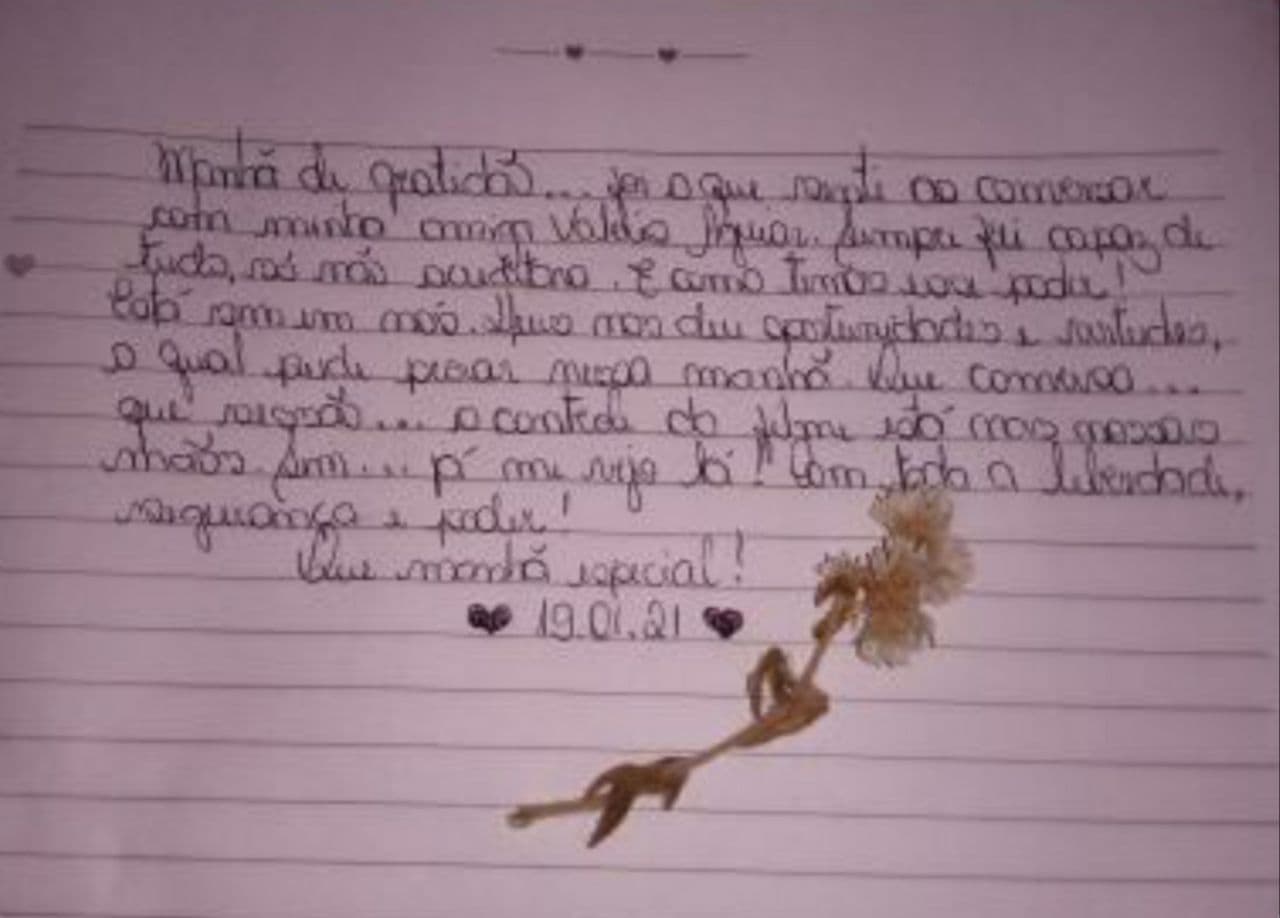 Manhã de gratidão... foi o que senti ao conversar
com minha amiga Valdia Aguiar. Sempre fui capaz de
tudo, só não acreditava. E como temos esse poder!
Está sem em nós. Deus nos deu oportunidades e virtudes,
o qual pude pensar nessa manhã. Que conversa...
que sessão... o controle do filme está nas nossas
mãos. Sim... já me vejo lá! Com toda a liberdade,
segurança e poder!
Que manhã especial!
19.01.21